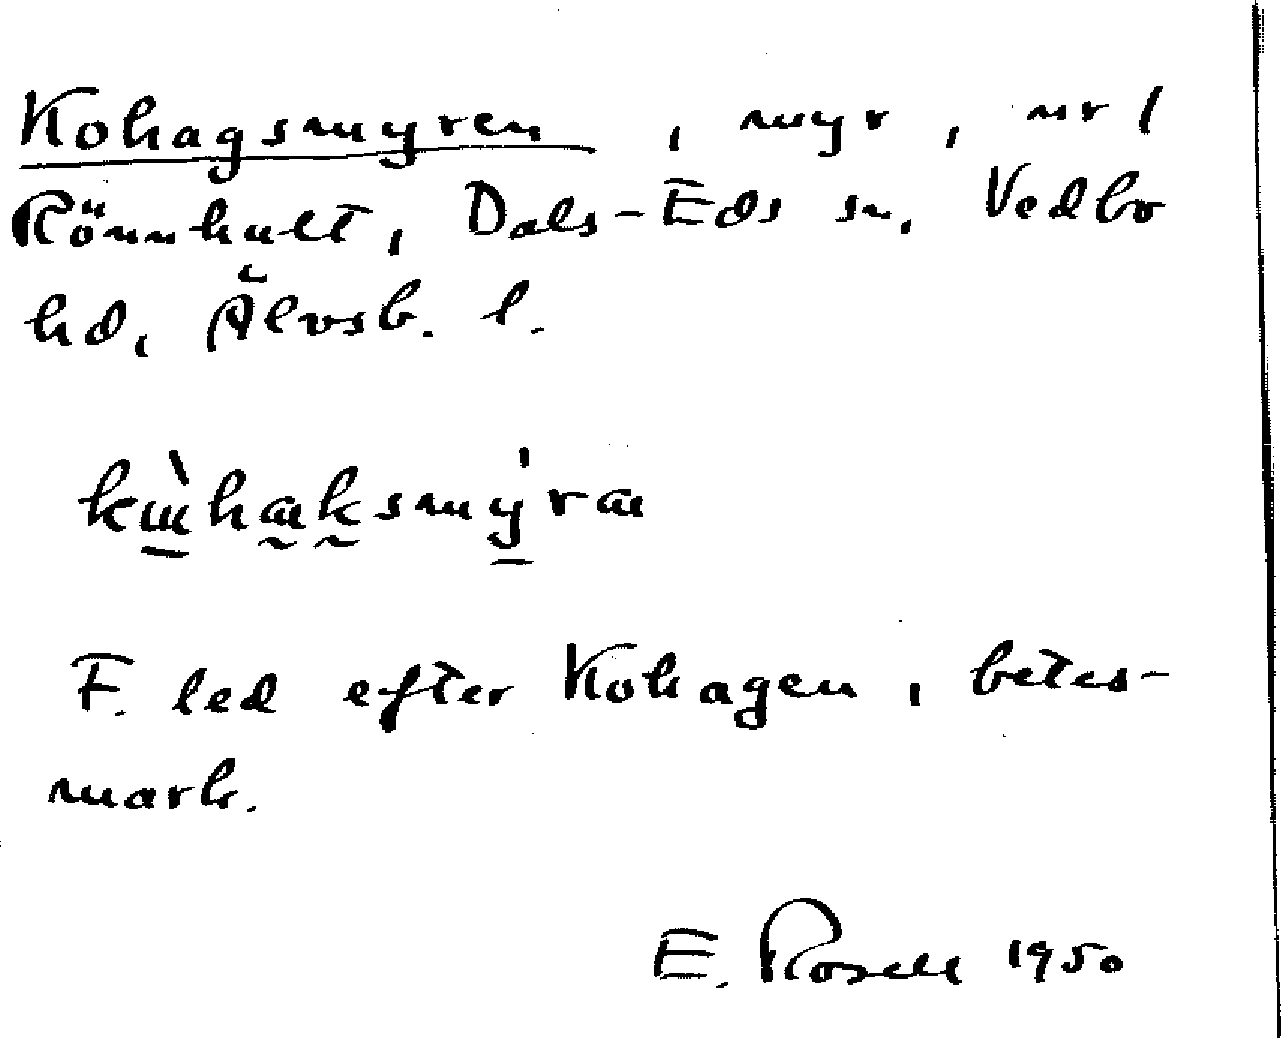 Kohagsmyren, myr, nr 1
Rönnhult, Dals-Eds sn, Vedbo
hd, Älvsb. l.
F. led efter Kohagen, betes-
mark.
E. Rosell 1950